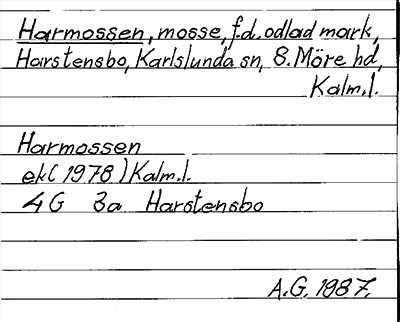 Harmossen, mosse, f.d. odlad mark,
Harstensbo, Karlslunda sn, S. Möre hd,
Kalm.l.
Harmossen
ek( 1978 ) Kalm.l.
4G 3a Harstensbo
A.G. 1987.